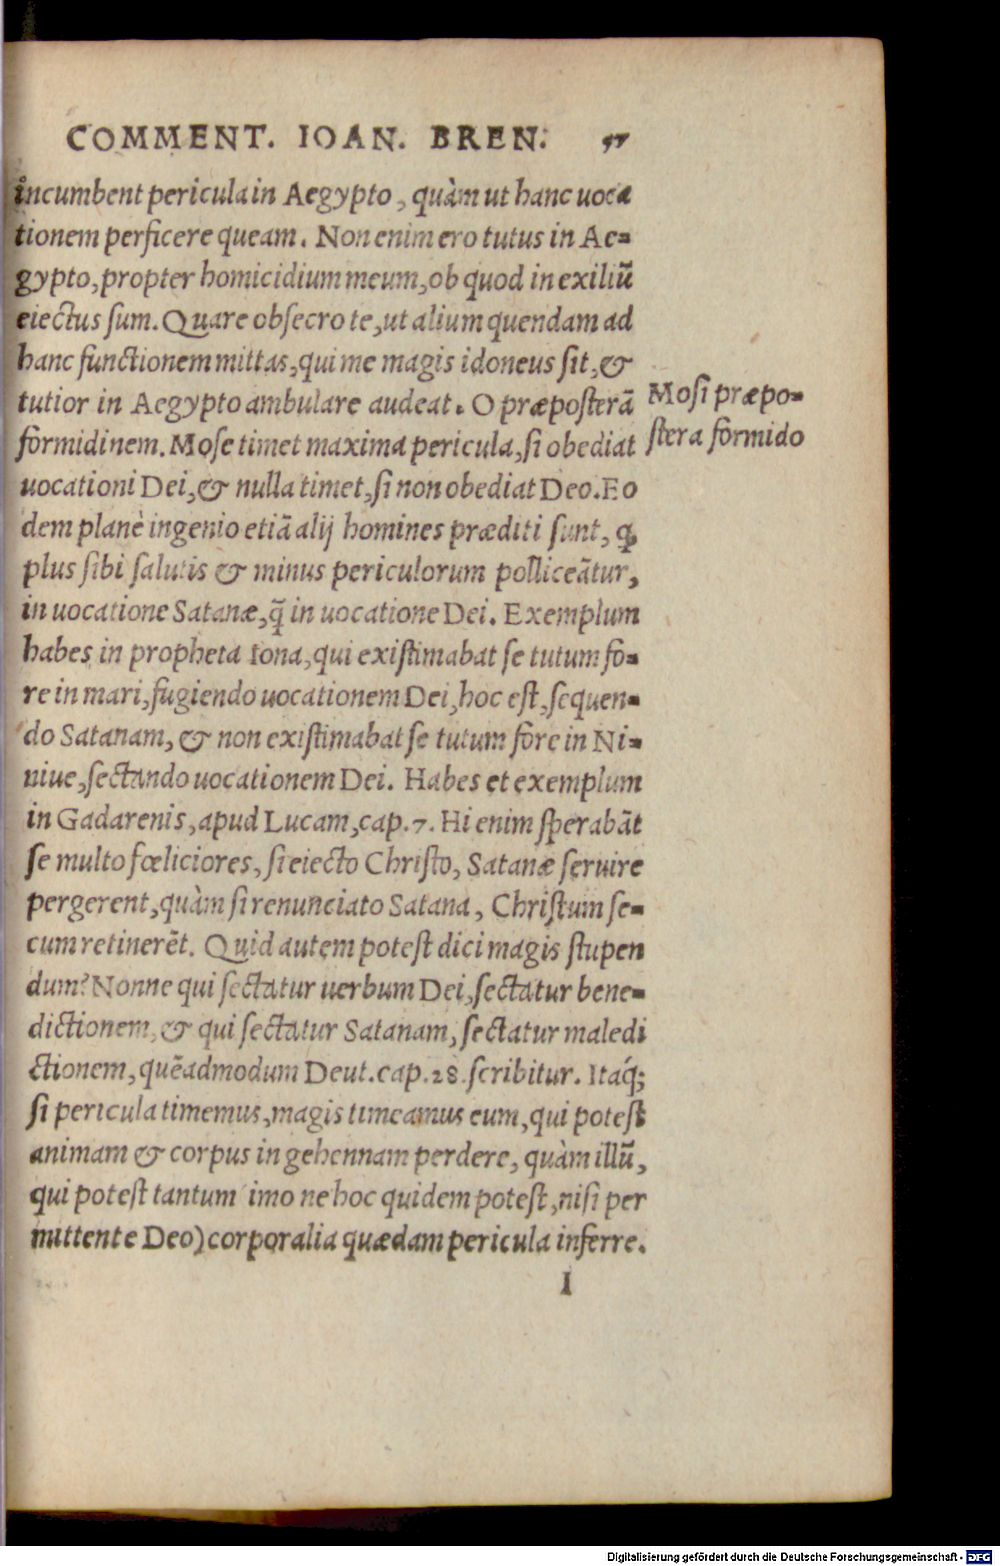 COMMENT. IOAN. BREN. 57
incumbent pericula in Aegypto, quàm ut hanc uoca
tionem perficere queam. Non enim ero tutus in Ae-
gypto, propter homicidium meum, ob quod in exiliũ
eiectus sum. Quare obsecro te, ut alium quendam ad
hanc functionem mittas, qui me magis idoneus sit, &
tutior in Aegypto ambulare audeat. O præposterã
formidinem. Mose timet maxima pericula, si obediat
uocationi Dei, & nulla timet, si non obediat Deo. Eo
dem planè ingenio etiã alij homines præditi sunt, ꝙ
plus sibi salutis & minus periculorum polliceãtur,
in uocatione Satanæ, q̃ in uocatione Dei. Exemplum
habes in propheta Iona, qui existimabat se tutum fo-
re in mari, fugiendo uocationem Dei, hoc est, sequen-
do Satanam, & non existimabat se tutum fore in Ni-
niue, sectando uocationem Dei. Habes et exemplum
in Gadarenis, apud Lucam, cap. 7. Hi enim sperabãt
se multo fœliciores, si eiecto Christo, Satanæ seruire
pergerent, quàm si renunciato Satana, Christum se-
cum retinerẽt. Quid autem potest dici magis stupen
dum? Nonne qui sectatur uerbum Dei, sectatur bene-
dictionem, & qui sectatur Satanam, sectatur maledi
ctionem, quẽadmodum Deut. cap. 28. scribitur. Itaq́;
si pericula timemus, magis timeamus eum, qui potest
animam & corpus in gehennam perdere, quàm illũ,
qui potest tantum imo ne hoc quidem potest, nisi per
mittente Deo) corporalia quædam pericula inferre.
I
Mosi præpo-
stera formido
Digitalisierung gefördert durch die Deutsche Forschungsgemeinschaft - DFG